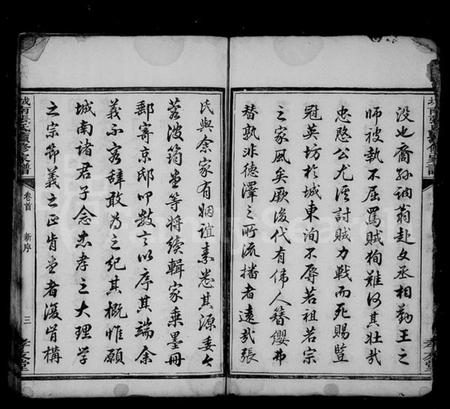 沒也裔孫訥翁赴文丞相勤王之
師被執不屈罵賊殉難何其壯哉
忠愍公尤淫討賊力戰而死賜諡
冠英坊於城東洵不辱若祖若宗
之家風矣厥後代有偉人簪纓弗
替孰非德澤之所流播者遠哉張
氏與余家有姻誼素悉其源委今
若波筠堂等將續輯家乘墨冊
郵寄京邸叩數言以序其端余
義不容辭敢為之紀其概惟願
城南諸君子念忠孝之大理學
之宗節義之正肯堂者復肯構
城南張氏續修家譜
卷首
新序
三
孝友堂